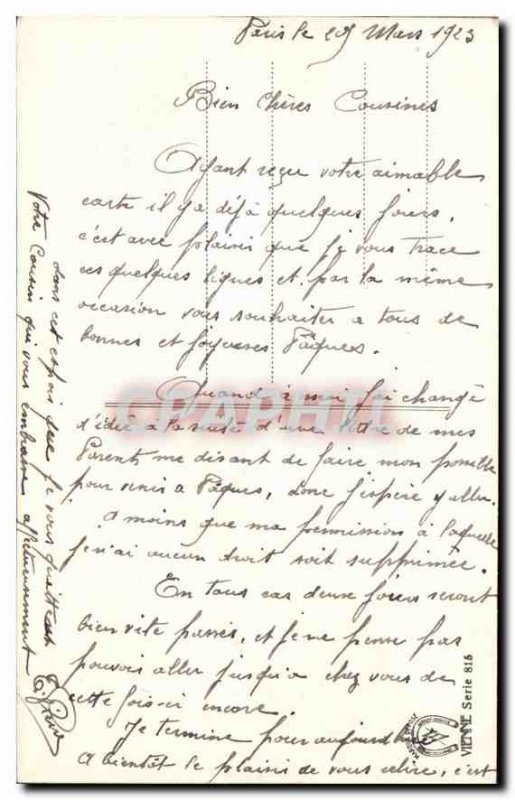 Paris le 29 Mars 1923
Bien Chères Cousines
Ayant reçu votre aimable
carte il y a déjà quelques jours,
c'est avec plaisir que je vous trace
ces quelques lignes et par la même
occasion vous souhaiter a tous de
bonnes et joyeuses Pâques.
Quand à moi j'ai changé
d'idée à la suite d'une lettre de mes
Parents me disant de faire mon possible
pour venir a Pâques, donc j'espère y aller.
A moins que ma permission à laquelle
je n'ai aucun droit soit supprimée.
En tous cas deux jours seront
bien vite passés, et je ne pense pas
pouvoir aller jusqu'a chez vous de
cette fois-ci encore.
Je termine pour aujourd'hui
A bientôt le plaisir de vous, c'est
dans cet espoir que je vous quitte
Votre Cousin qui vous embrasse affectueusement
CPAPHIL
VIENNE Serie 815